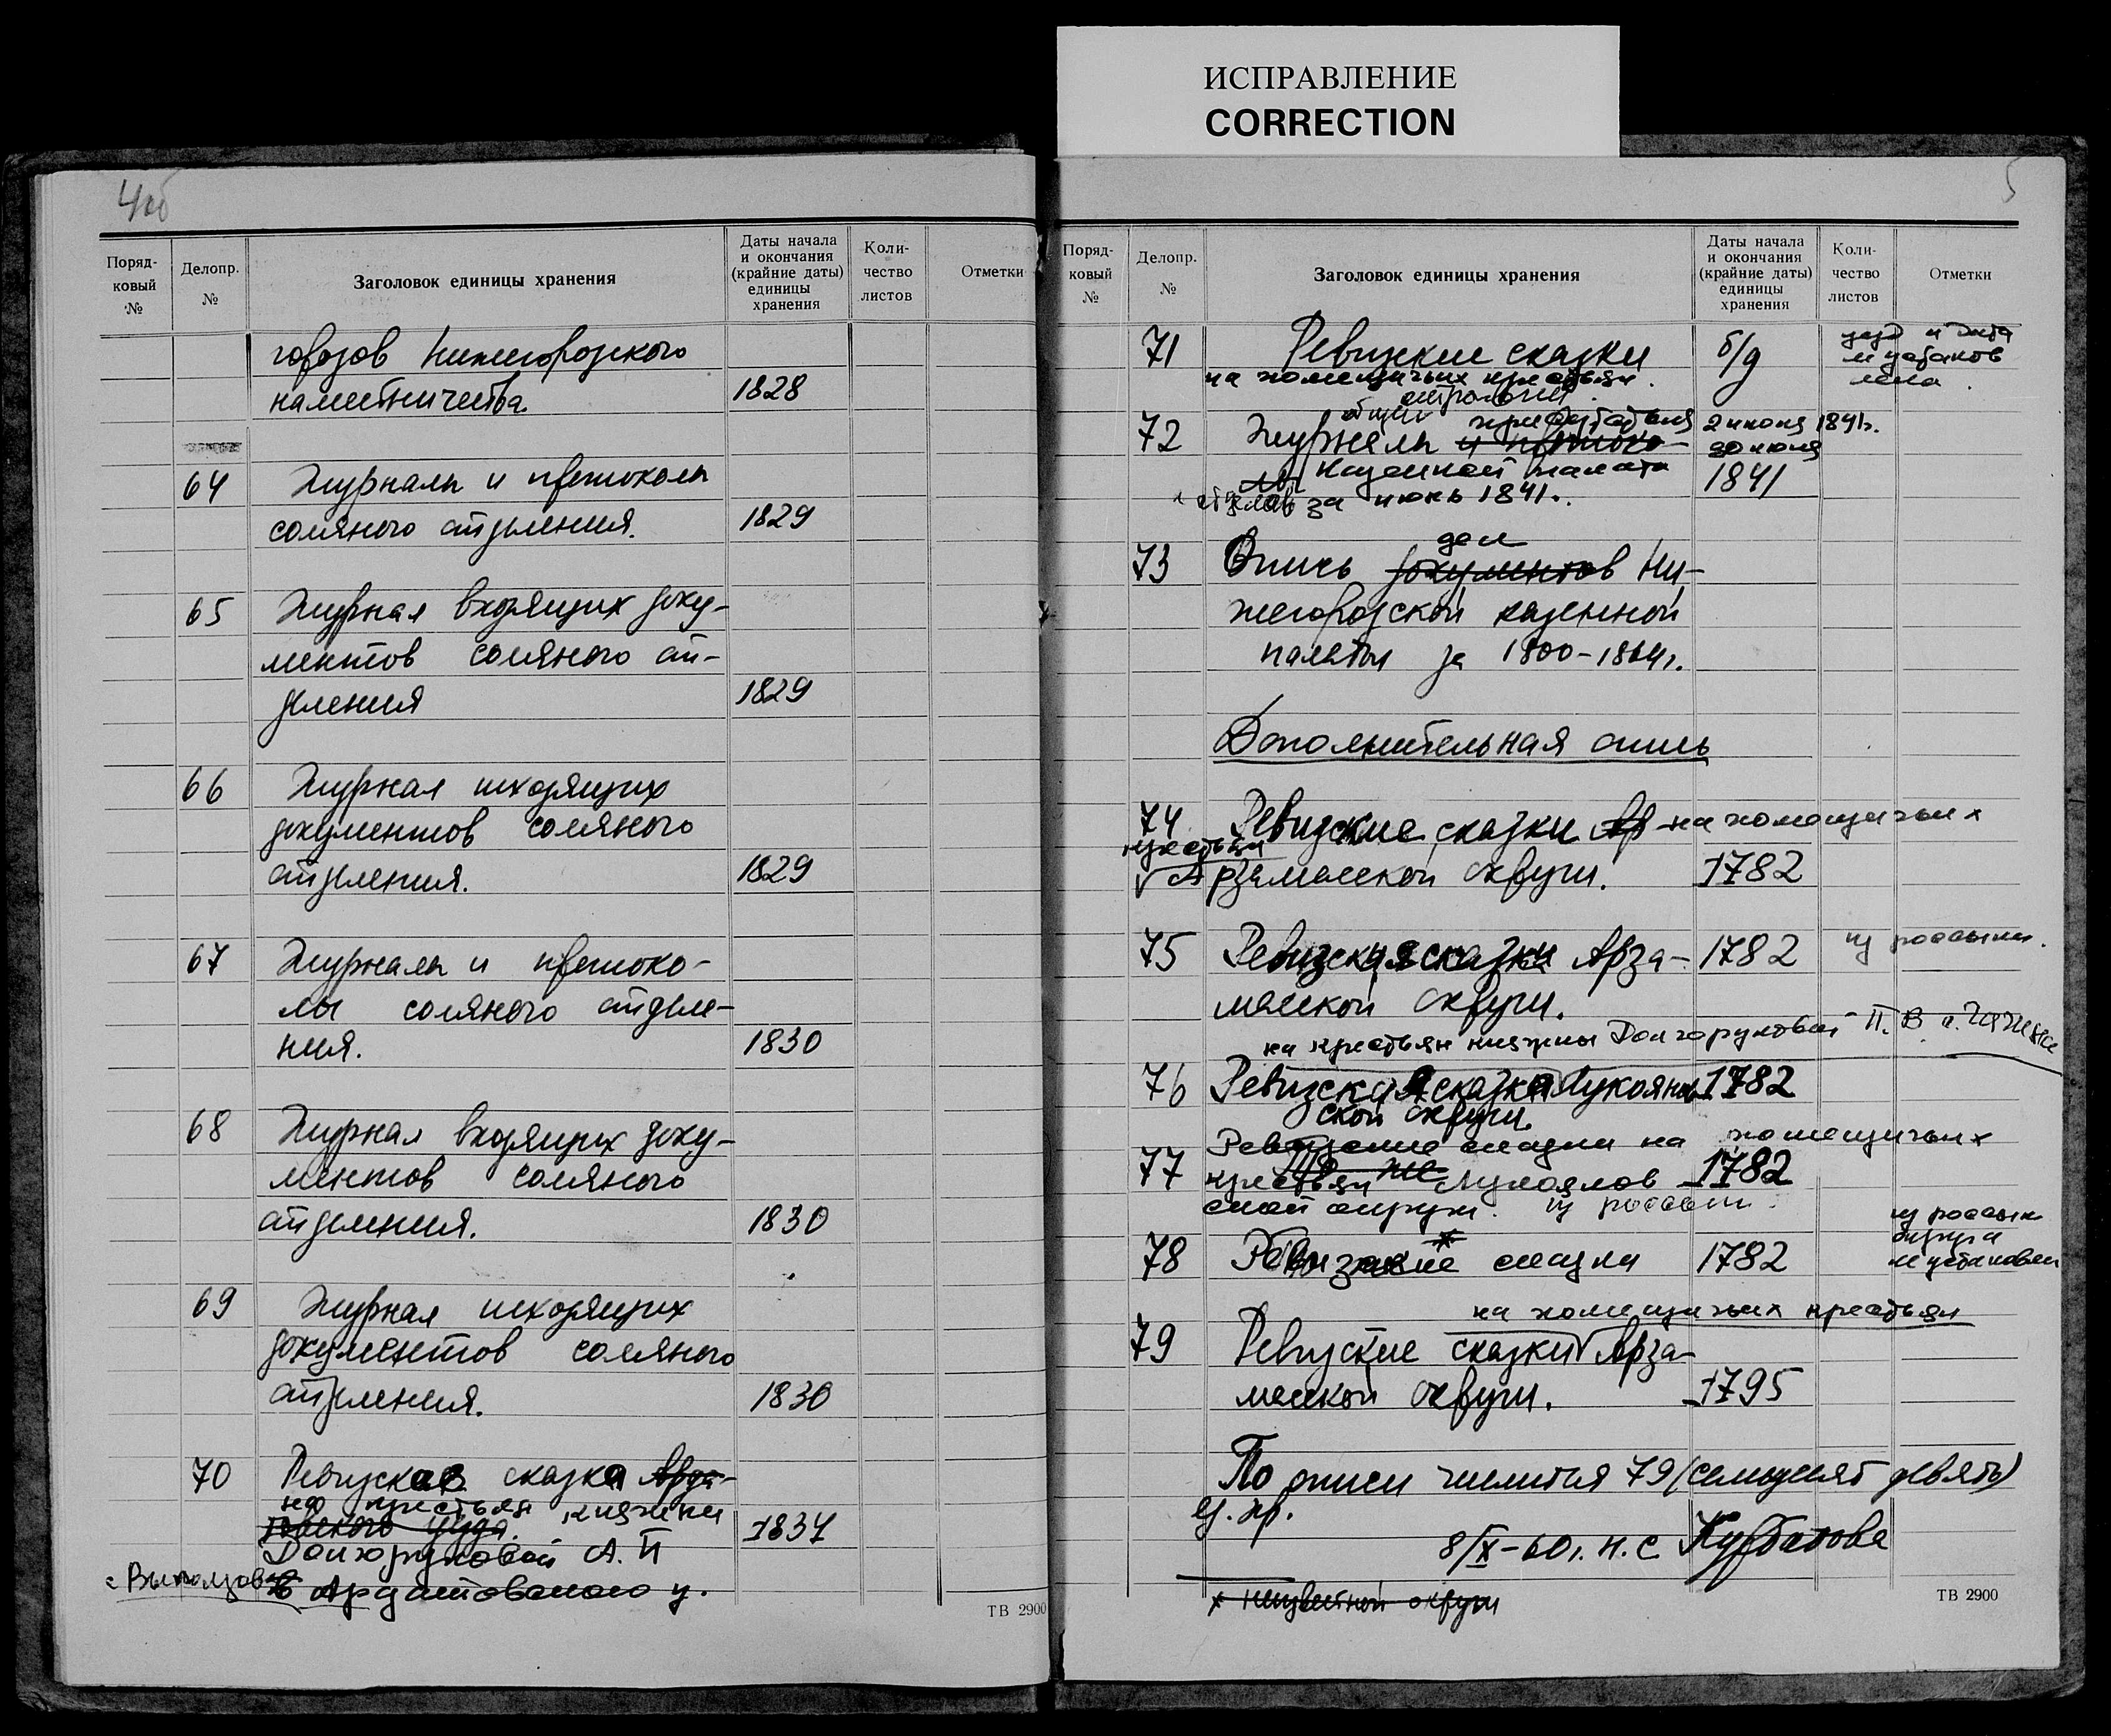 ИСПРАВЛЕНИЕ
CORRECTION
4об
Поряд-
ковый
№
Делопр.
№
Заголовок единицы хранения
Даты начала
и окончания
(крайние даты)
единицы
хранения
Коли-
чество
листов
Отметки
городов Нижегородского
наместничества. 1828
64 Журналы и протоколы
соляного отделения. 1829
65 Журнал входящих доку-
ментов соляного от-
деления 1829
66 Журнал исходящих
документов соляного
отделения. 1829
67 Журналы и протоко-
лы соляного отделе-
ния. 1830
68 Журнал входящих доку-
ментов соляного
отделения. 1830
69 Журнал исходящих
документов соляного
отделения. 1830
70 Ревизская сказка Арда-
на крестьян княжны
товского уезда. 1834
Долгоруковой А. П
с. Выползово Ардатовского у.
ТВ 2900
5
Поряд-
ковый
№
Делопр.
№
Заголовок единицы хранения
Даты начала
и окончания
(крайние даты)
единицы
хранения
Коли-
чество
листов
Отметки
71 Ревизские сказки б/д уезд и дата
на помещичьих крестьян. не установ
лена.
общего присутствия 2 июня 1841г.
72 Журналы и протоко- 30 июня
лы Казенной палаты 1841
и отделов за июнь 1841г.
дел
73 Опись документов Ни-
жегородской казенной
палаты за 1800-1864г.
Дополнительная опись
74 Ревизские сказки Ар на помещичьих
крестьян
Арзамасской округи. 1782
75 Ревизская сказки Арза- 1782 из россыпи.
масской округи.
на крестьян княжны Долгоруковой П. В
76 Ревизская сказка Лукоянов 1782
ской округи.
Ревизские сказки на помещичьих
77 То же 1782
крестьян Лукоянов
ской округи. из россып.
из россып
округа
78 Ревизские* сказки 1782 не установлен
на помещичьих крестьян
79 Ревизские сказки Арза-
масской округи. 1795
По описи числится 79 (семьдесят девять)
ед. хр.
8/X-60г. Н. С Курбатова
х неизвестной округи
ТВ 2900